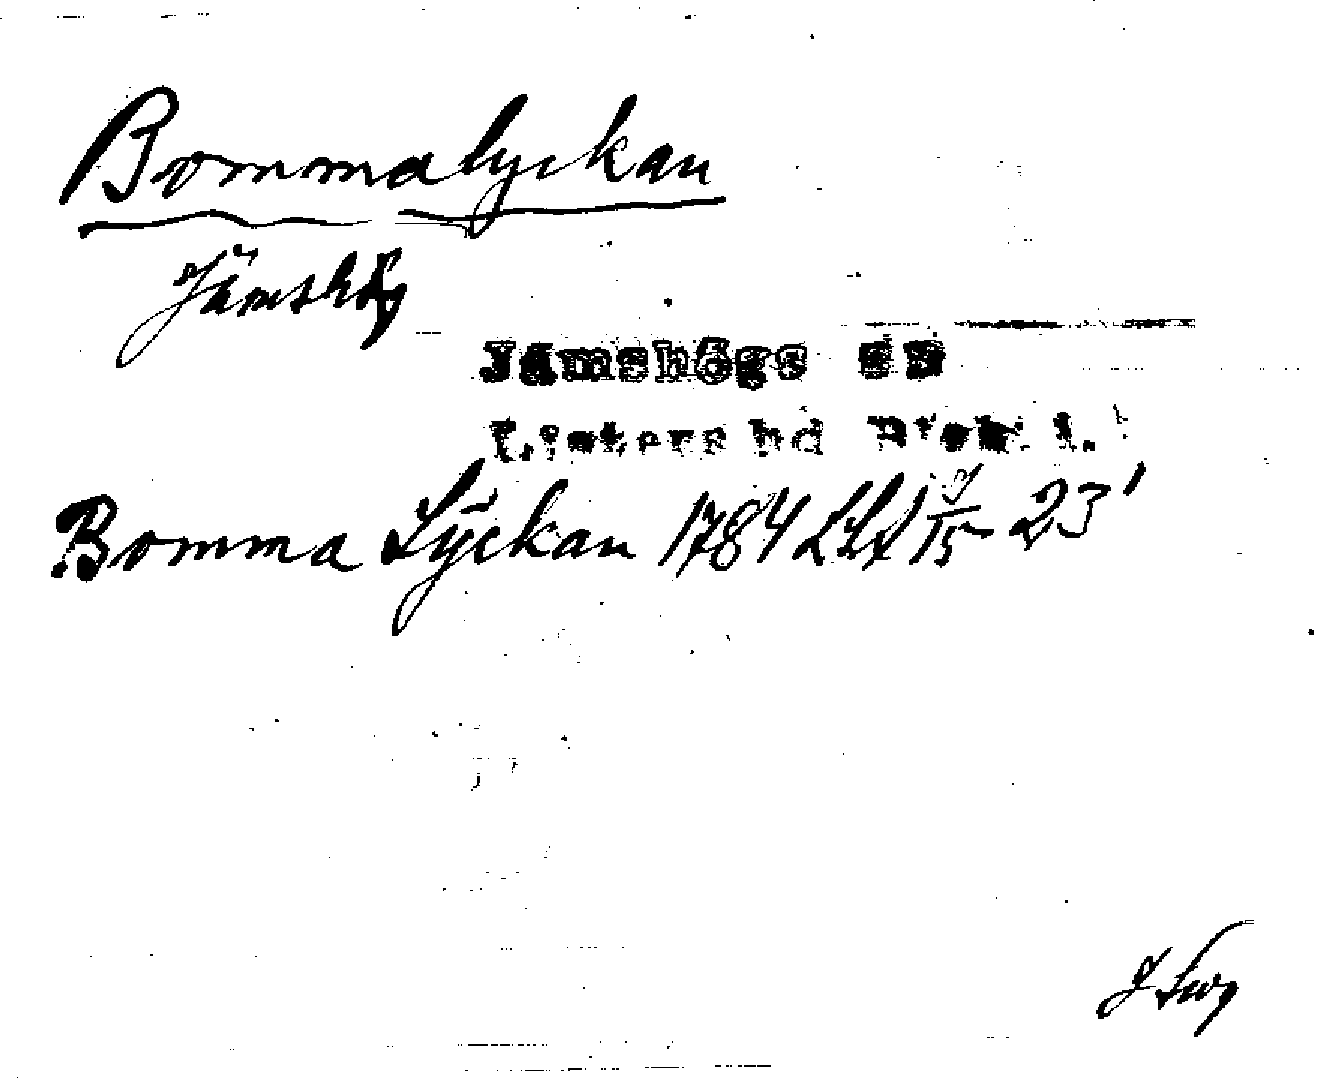 Bommalyckan
Jämshög
Jämshögs sn
Listers hd Blek. l.
Bomma Lÿckan 1784 LLA 23'